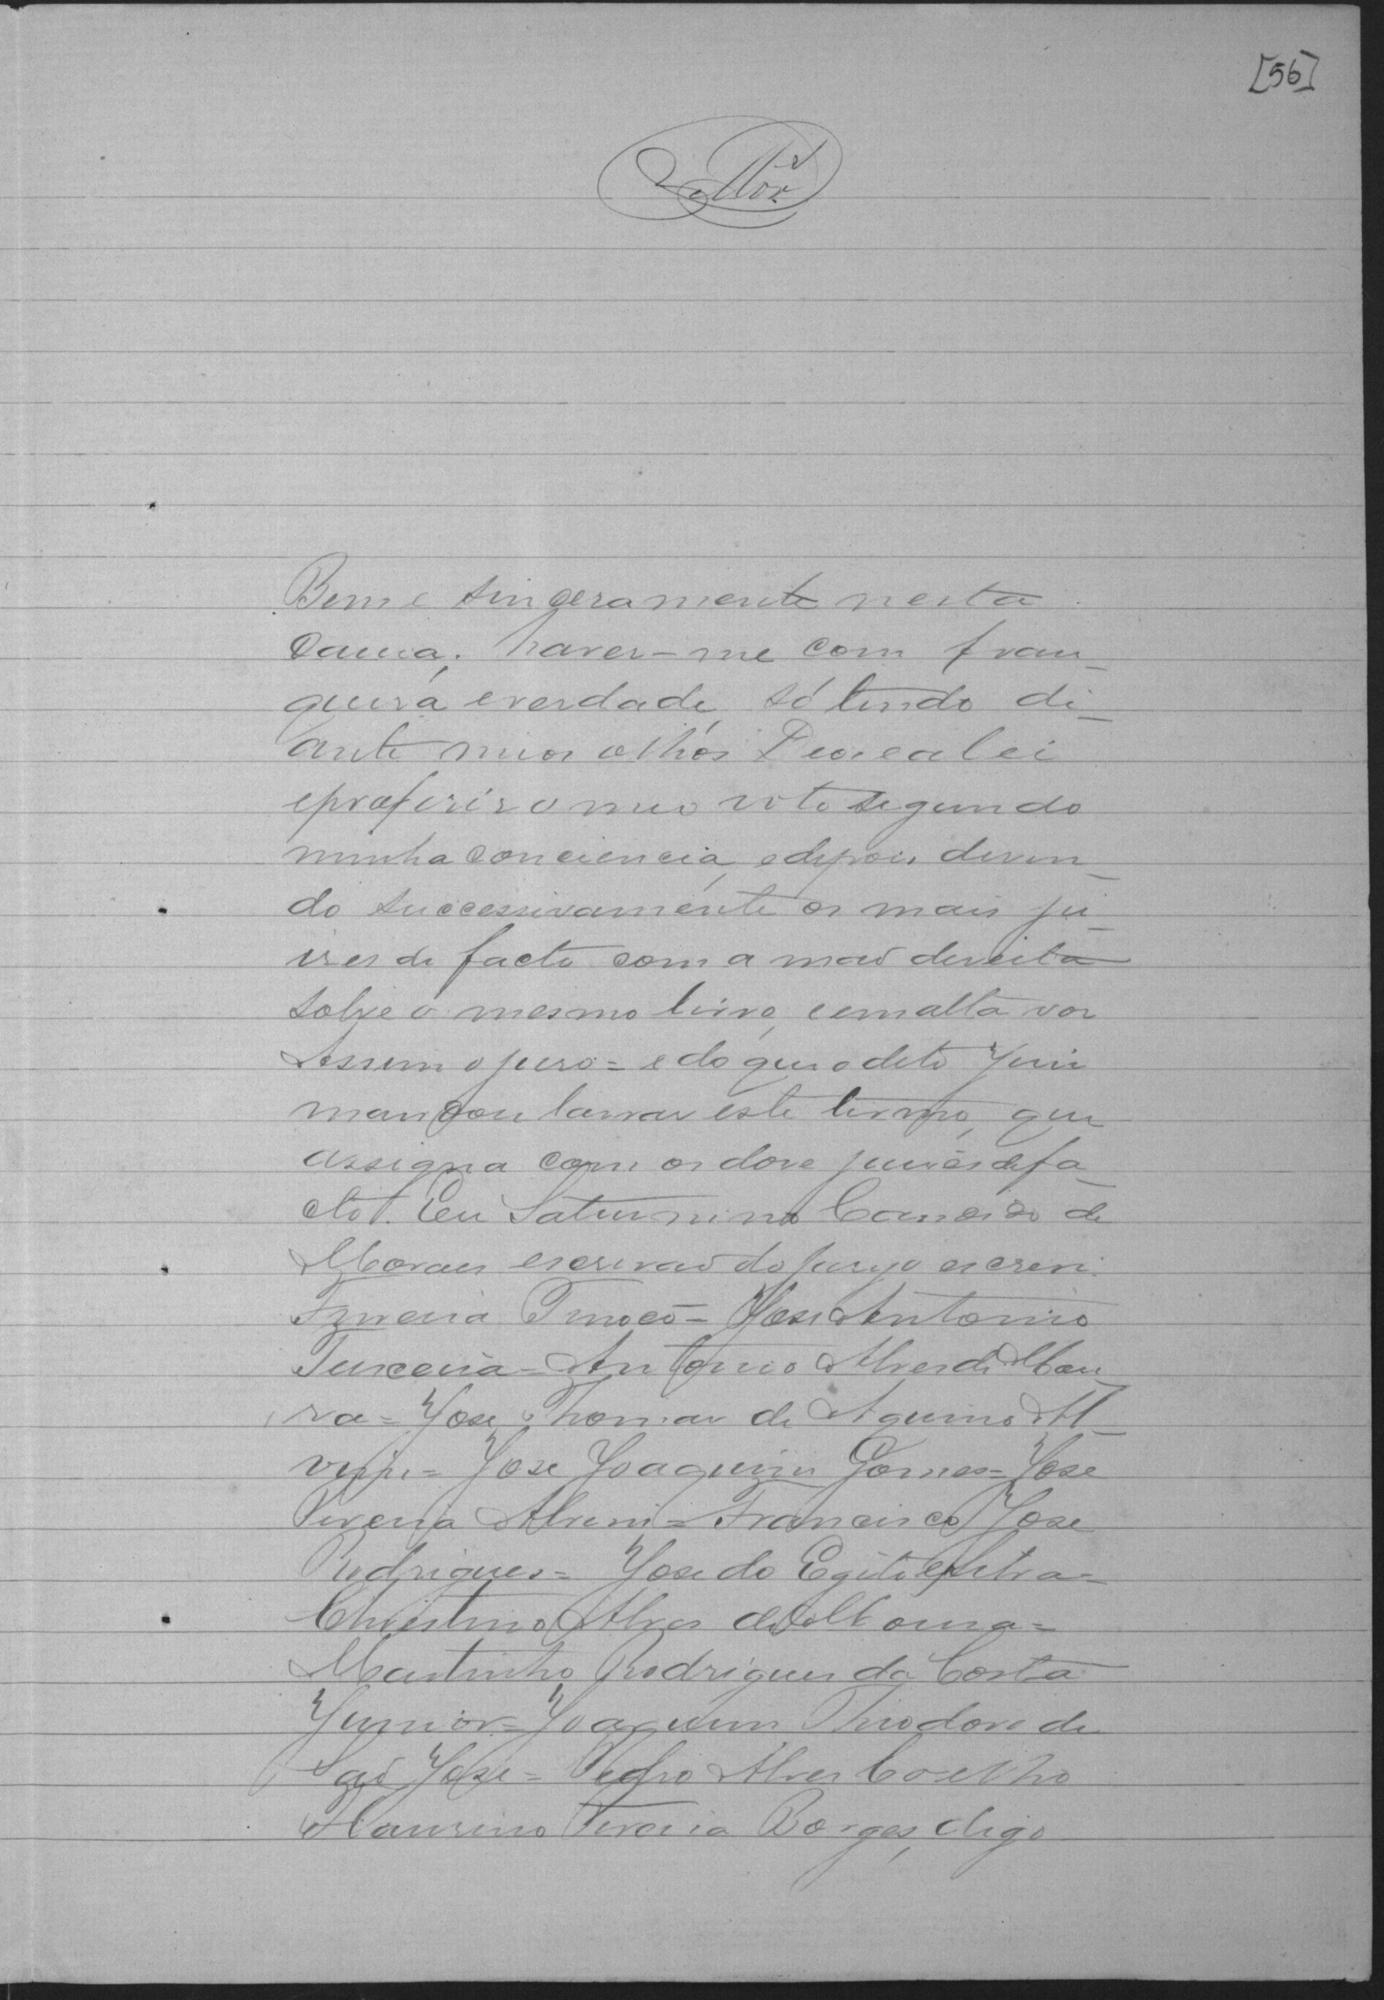 [56]
Bem e sinceramente nesta
causa; haver-me com fran_
queza e verdade, só tendo di_
ante meos olhos Deos e a lei
e proferir o meo voto segundo
minha conciencia, e depois diven_
do successivamente os mais ju_
izes de facto com a mão direita
sobre o mesmo livro, e em alta voz
Assim o juro = e do que o dito Juiz
mandou lavrar este termo, que
assigna com os doze juizes de fa_
cto. Eu Saturnino Candido de
Moraes escrivão do jury o escrevi.
Tinoco = José Antonio
Teixeira = Antonio Alves de Mou_
ra = José Thomas de Aquino Al_
= José Joaquim Gomes = José
Pereira Alvim = Francisco José
Rodrigues = José do Egito =
Christino Alves de Moura =
Martinho Rodrigues da Costa
Junior = Joaquim Theodoro de
São José = Pedro Alves Coelho
Pereira Borges, digo